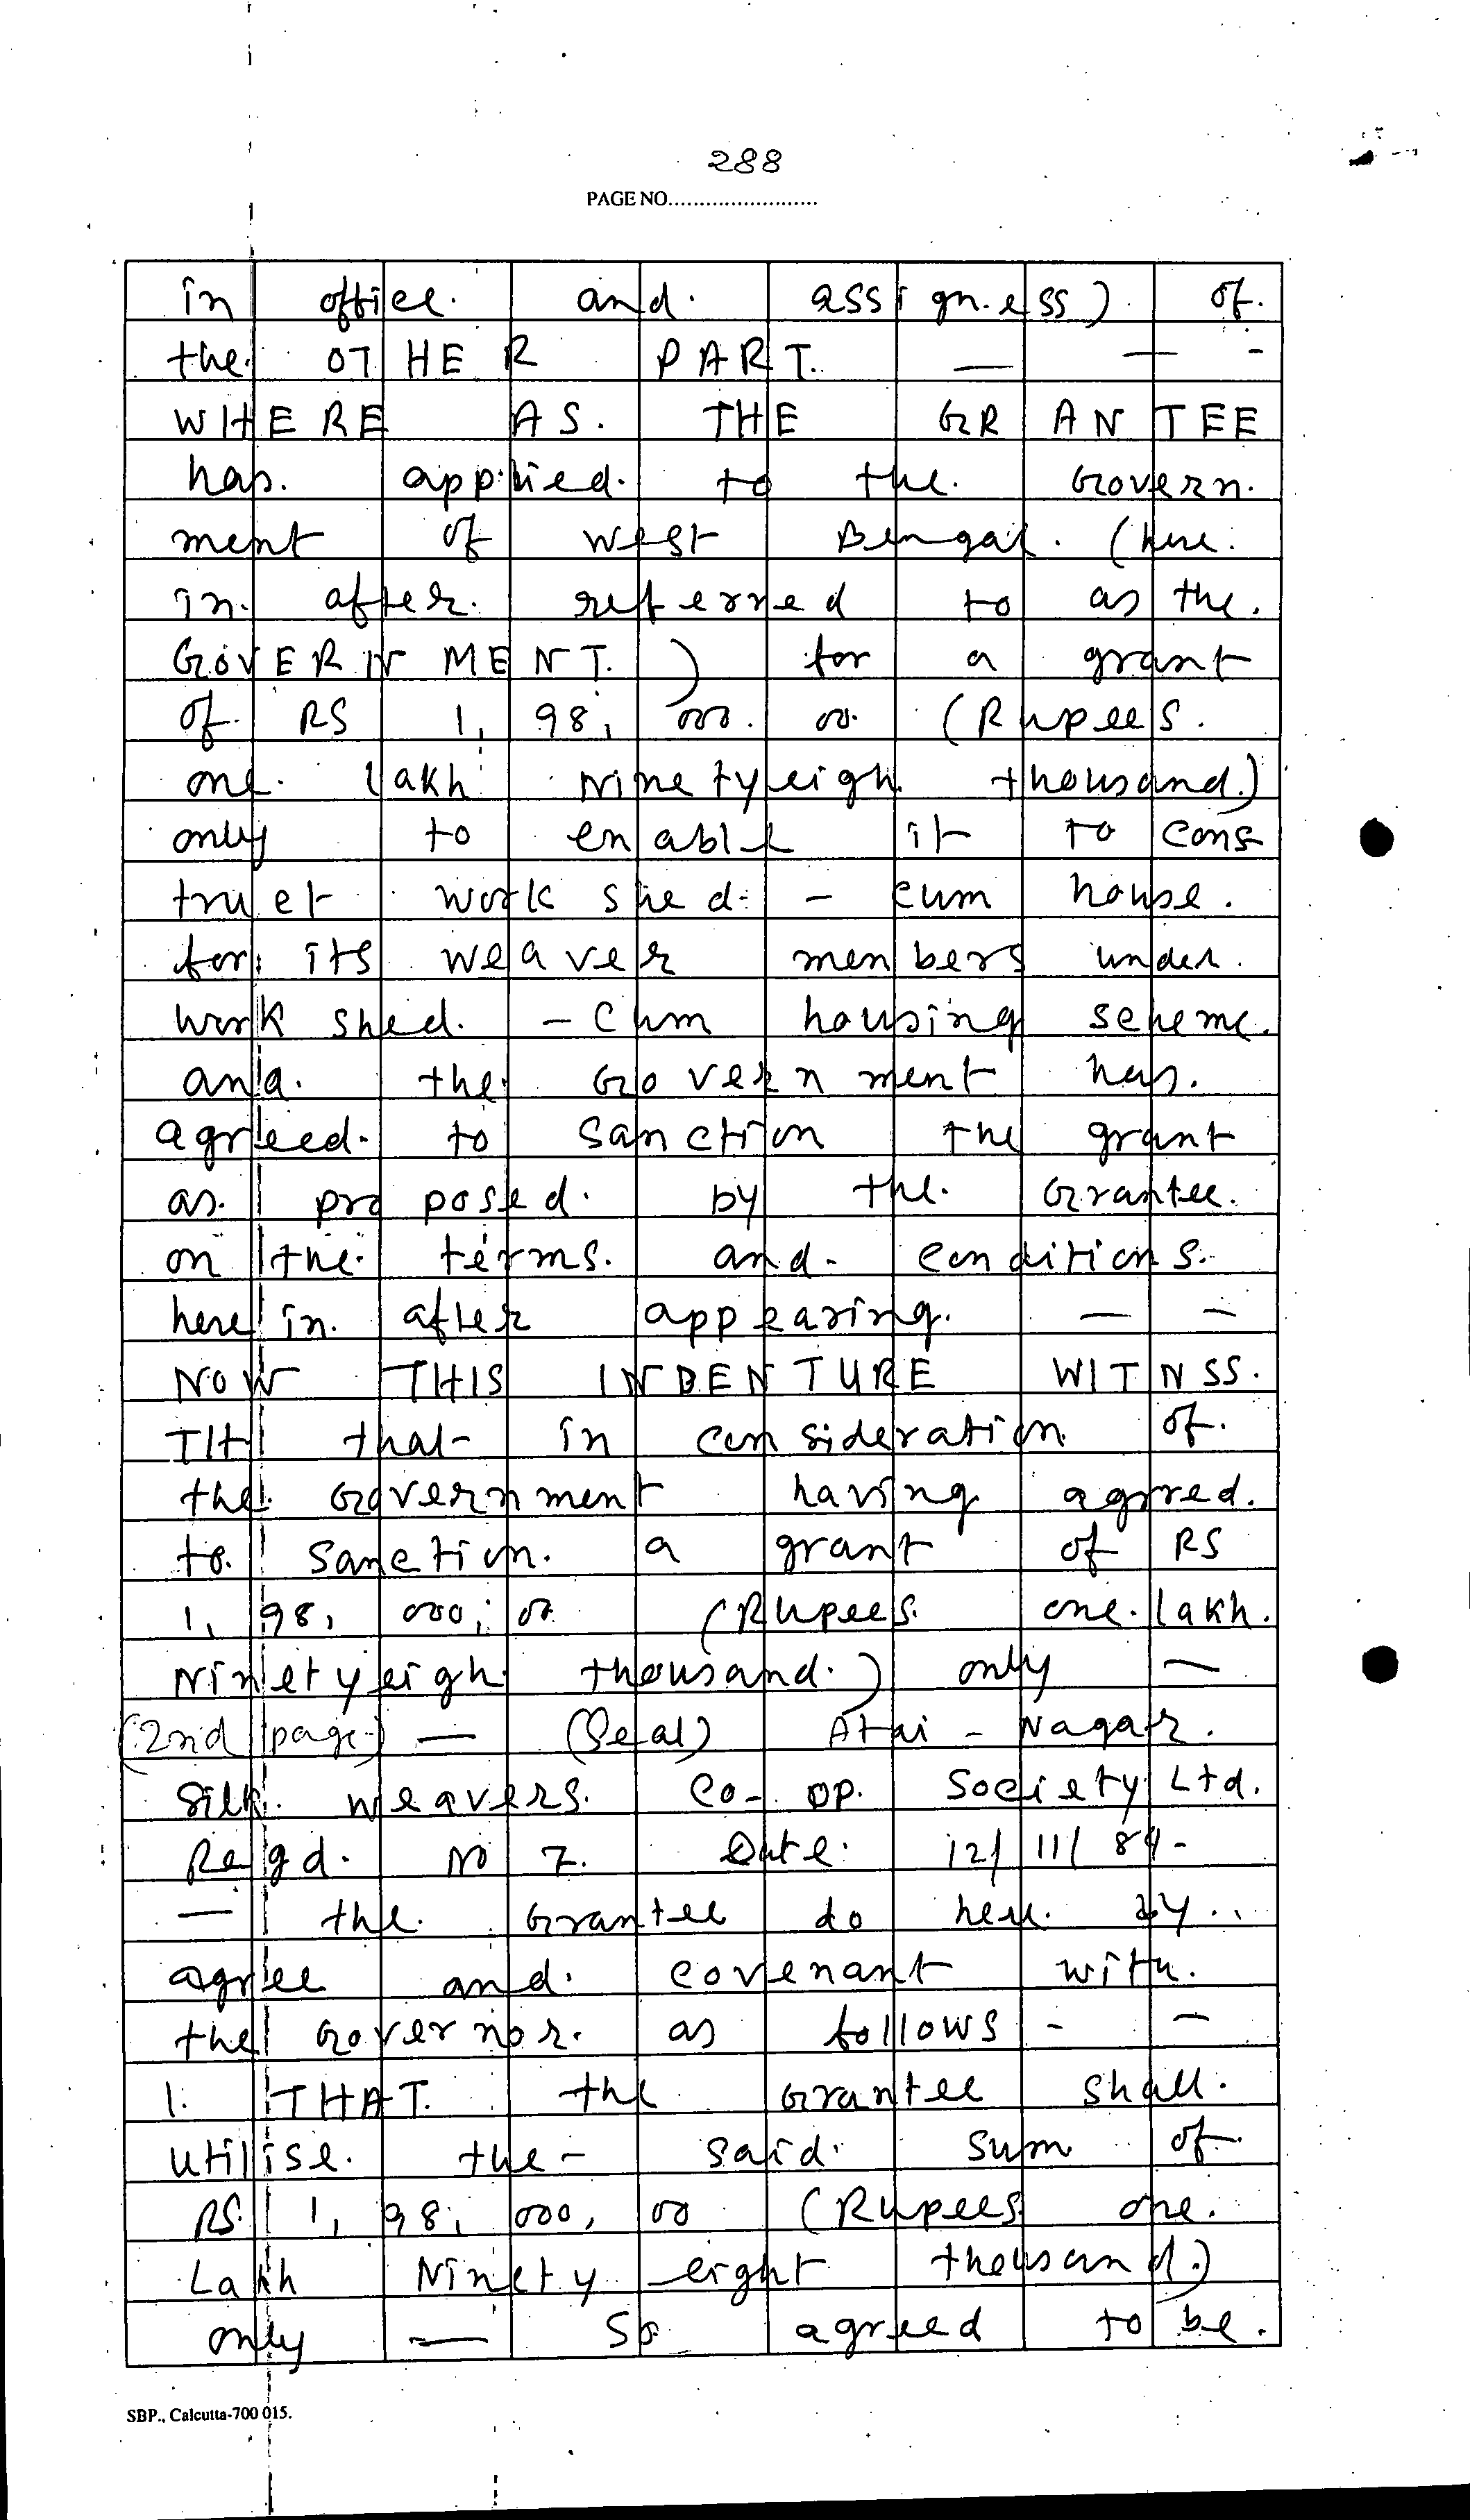 288
PAGE NO........................
in office. and. assigness) of.
the. OTHER PART. — — -
WHERE AS. THE GRANTEE
has. applied. to the. Govern.
ment of West Bengal. (here.
in. after. referred to as the.
GOVERNMENT.) for a grant
of. RS 1, 98, 000. 00. (Rupees.
one. lakh Ninetyeigh. thousand.)
only to enable it to cons
truct work shed. - cum house.
for its weaver menbers under.
work shed. - cum housing scheme.
and. the Government has.
agreed. to sanction the grant
as. proposed. by the. Grantee.
on the. terms. and - conditions.
here in. after appearing. — —
NOW THIS INDENTURE WITNSS.
TH that - in consideration of.
the. Government having agrred.
to. sanction. a grant of RS
1, 98, 000, 00 (Rupees. one. lakh.
Ninetyeigh. thousand.) only —
(2nd page) — (Seal) Atai - Nagar.
Silk. weavers. Co-op. Society Ltd.
Regd. No 7. Date. 12/11/84-
— the. Grantee do here. by..
agree and. covenant with.
the Governor. as follows - —
1. THAT. the Grantee shall.
utilise. the - said. sum of.
RS. 1, 98, 000, 00 (Rupees one.
Lakh Ninety eight thousand.)
only — So agreed to be.
SBP., Calcutta-700 015.